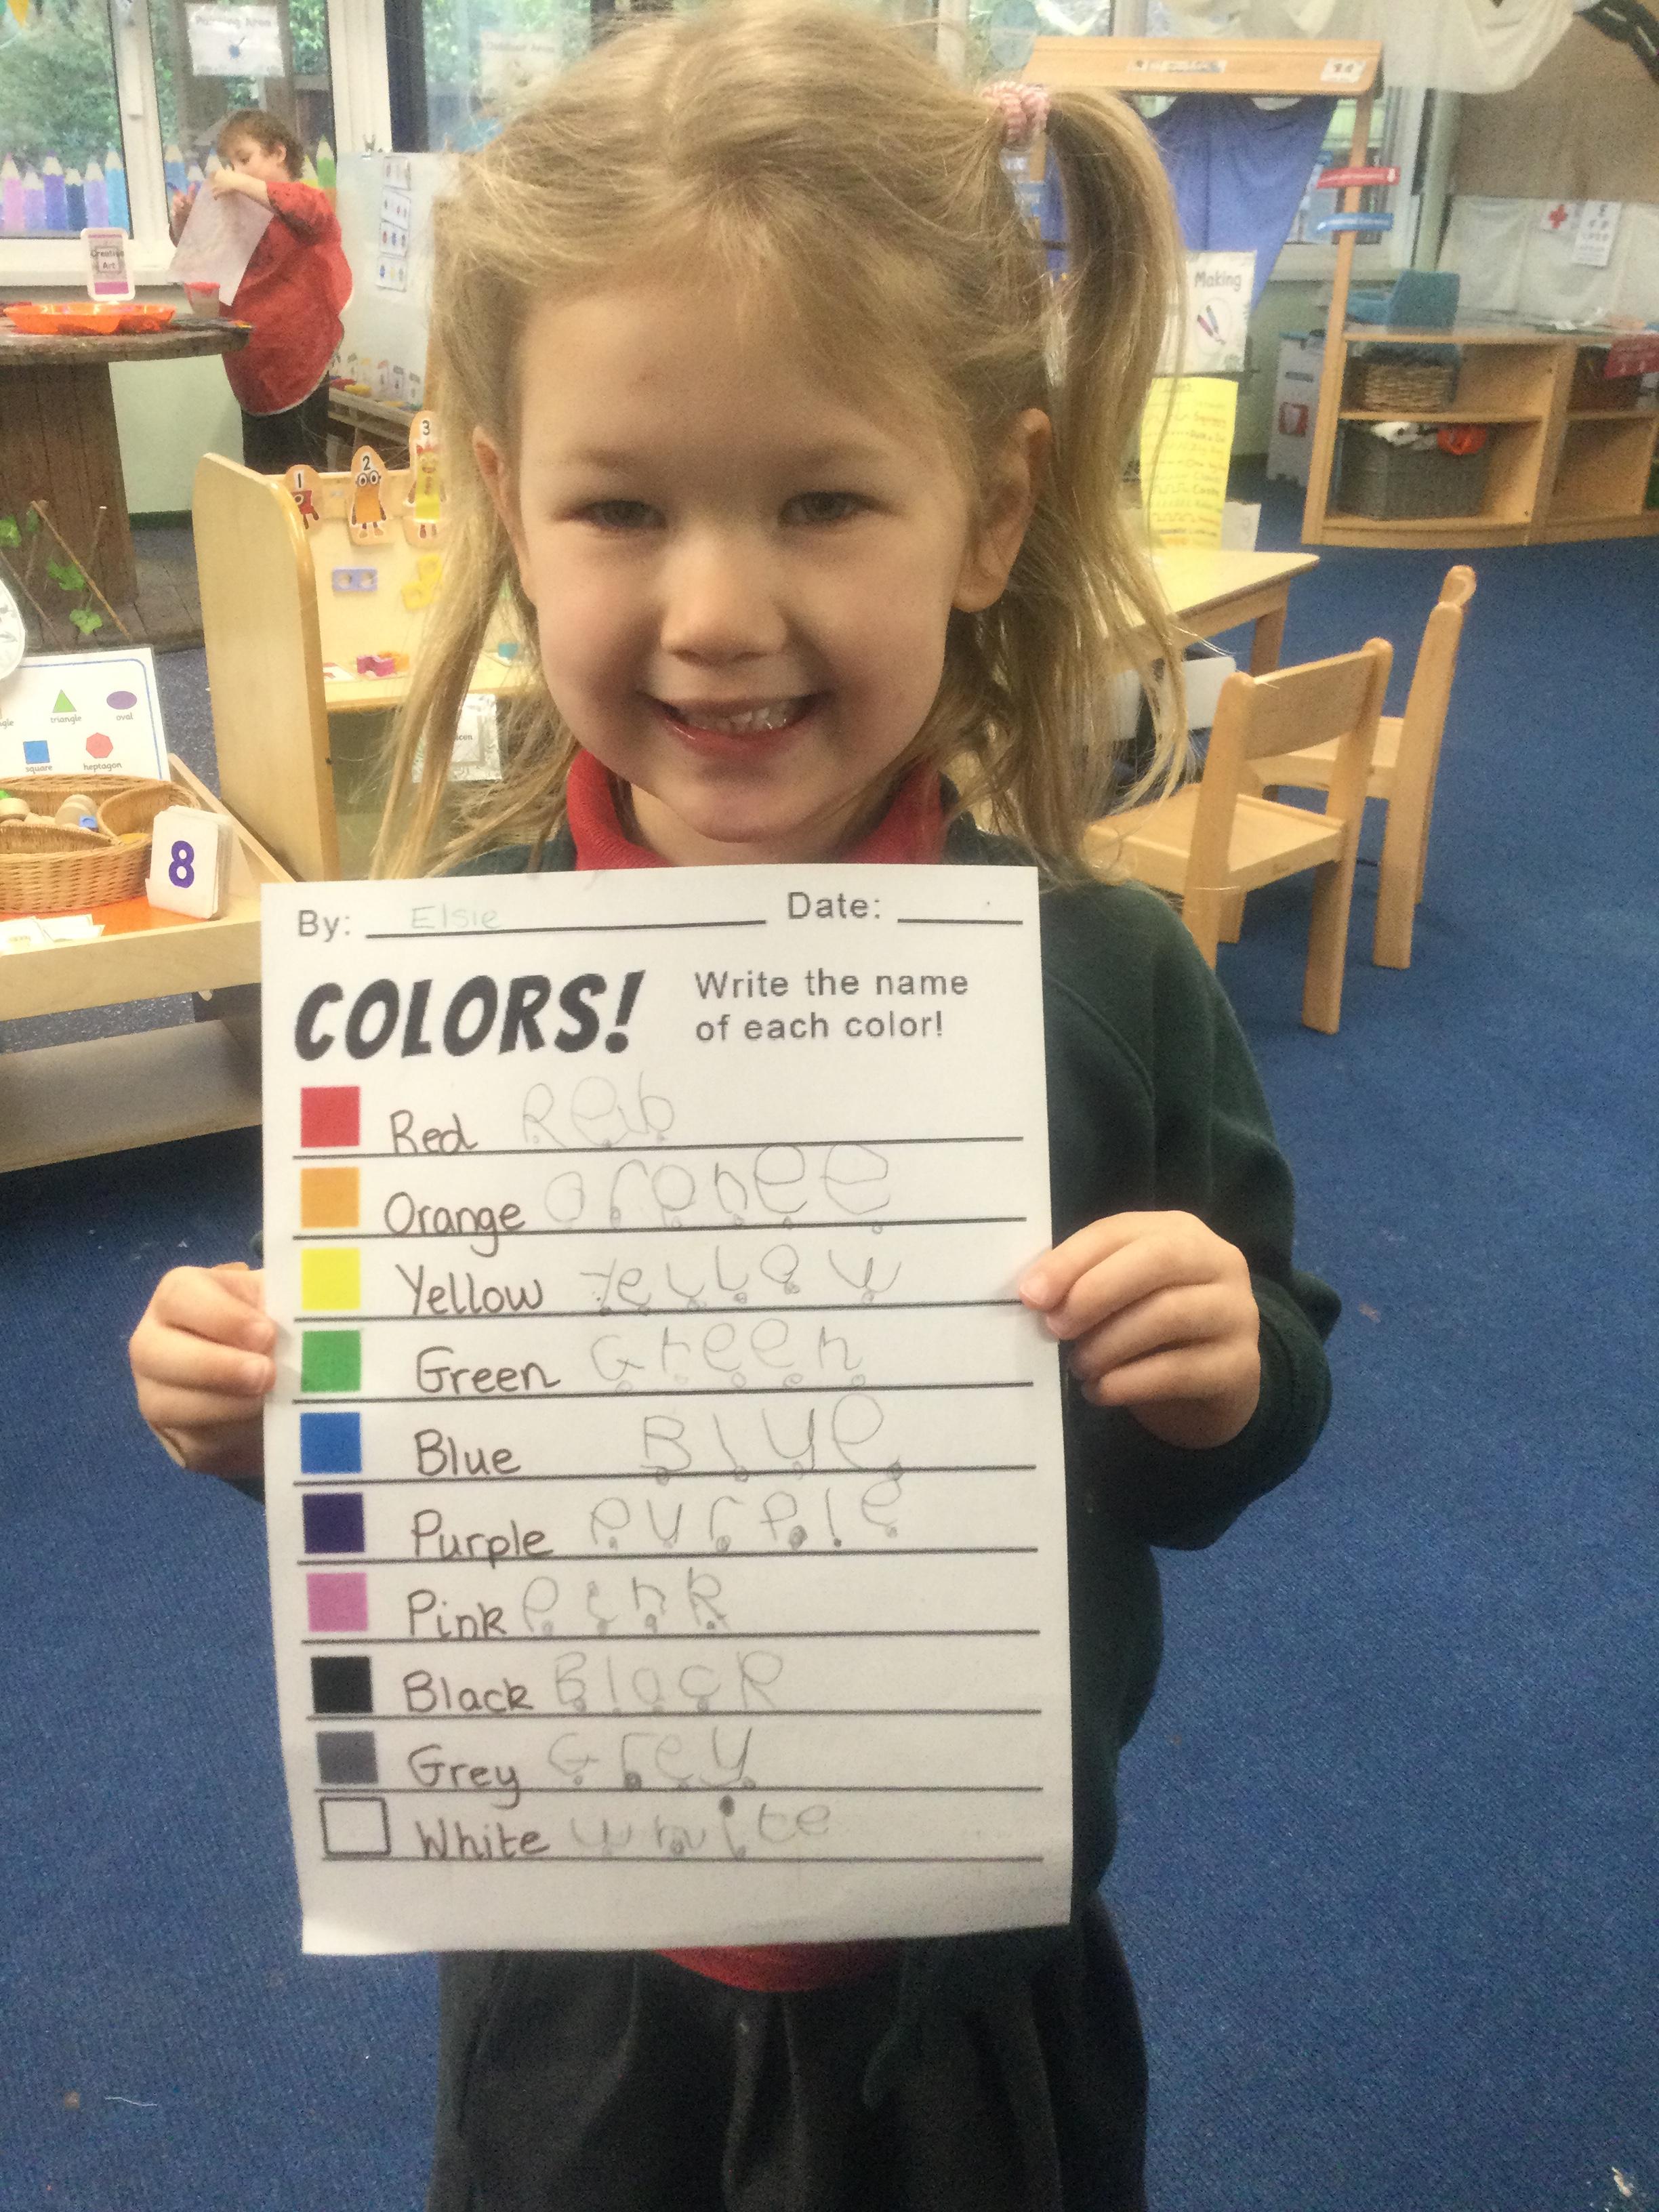 Painting Area
Outdoor Area
Creative
Art
1
2
3
Making
triangle
oval
square
heptagon
8
By: Elsie Date:
COLORS! Write the name
of each color!
Red Reb
Orange oranee
Yellow Yellow
Green Green
Blue Blye
Purple purple
Pink Pink
Black Black
Grey Grey
White white